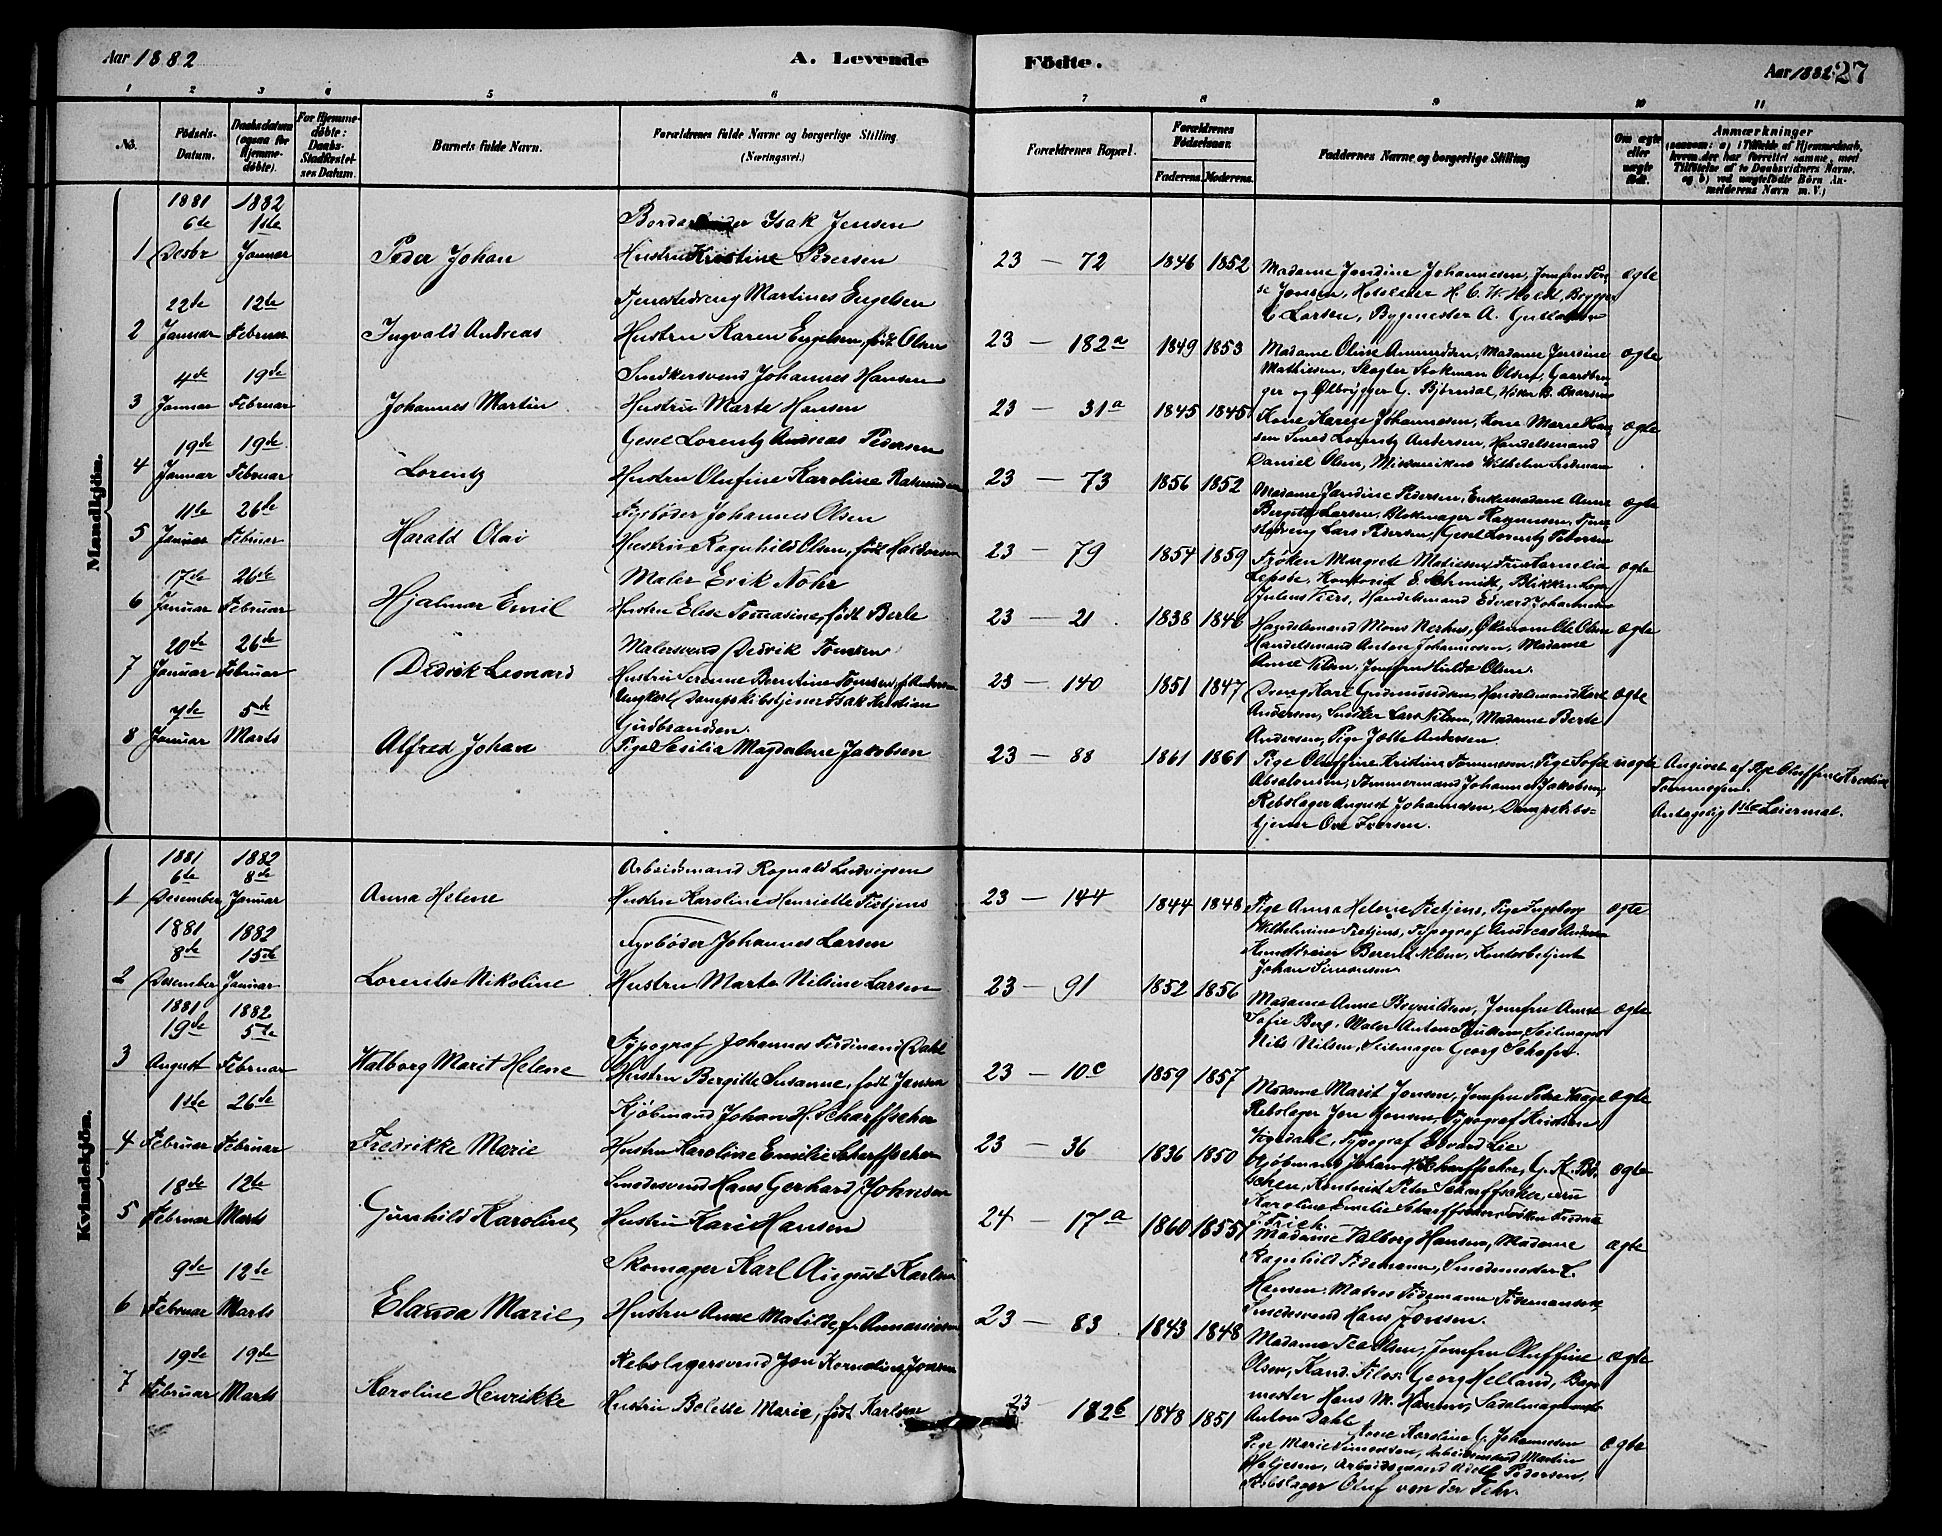 Aar 1882
A. Levende
Fødte.
Aar 1882. 27
1 2 3 4 5 6 7 8 9 10 11
No.
Fødsels-Datum.
Daabsdatum (ogsaa for Hjemmedøbte).
For Hjemmedøbte: Daabs-Stadfæstelses Datum.
Barnets fulde Navn.
Forældrenes fulde Navne og borgerlige Stilling. (Næringsvei.)
Forældrenes Bopæl.
Forældrenes Fødselsaar.
Faderens. Moderens.
Faddernes Navne og borgerlige Stilling
Om ægte eller uægte født.
Anmærkninger
(saasom: a) i Tilfælde af Hjemmedaab, hvem der har forrettet samme, med Tilføielse af to Daabsvidners Navne, og b) ved uægtefødte Børn Anmelderens Navn m. V.)
Mandkjön.
1881 1882
6te 1ste
Isak Jensen
1 Desbr Januar Peder Johan Hustru Kristine Pedersen 23 — 72 1846 1852 Madame Jondine Johannesen, Jomfru
ægte
Jensen, H. C. W. Holdt,
C Larsen, Bygmester A.
22de 12te
Martines Engelsen
2 Januar Februar Ingvald Andreas Hustru Karen Engelsen, født Olsen 23 — 182a 1849 1853 Madame Oline Amundsen, Madame Jensine ægte
Mathiesen, Slagter Olsen,
og Ølbrygger G. Bjørndal,
4de 19de
Snedkersvend Johannes Hansen
3 Januar Februar Johannes Martin Hustru Marte Hansen 23 — 31a 1845 1845 Kone Karen Johannesen, Kone Marie ægte
Smed Lorentz Andersen, Handelsmand
Daniel Olsen, Wilhelm
19de 19de
Gesel Lorentz Andreas Pedersen
4 Januar Februar Lorentz Hustru Olufine Karoline 23 — 73 1856 1852 Madame Jondine Pedersen, Enkemadame Anne ægte
Larsen, Blokmager Rasmussen,
Lars Pedersen, Gesel Lorentz Petersen
11te 26de
Fyrbøder Johannes Olsen
5 Januar Februar Harald Olai Hustru Ragnhild Olsen, født Haldorsen 23 — 79 1854 1859 Frøken Margrete Mathiesen, Fru Cornelia ægte
Kontorist E. Schmidt,
Julius Handelsmand Edvard Johannesen
17de 26de
Maler Erik Nohr
6 Januar Februar Hjalmar Emil Hustru Elise Tomasine, født Berle 23 — 21 1838 1846 Handelsmand Mons Nerhus, Økonom Ole Olsen ægte
Handelsmand Anton Johannesen, Madame
Anne Nilsen, Jomfru Hulda Olsen.
20de 26de
Malersvend Didrik Tomsen
7 Januar Februar Didrik Leonard Hustru Serene Berntine Tomsen, f. Andersen 23 — 140 1851 1847 Dreng Karl Gudmundsen, Handelsmand Karl ægte
Andersen, Snedker Lars Nilsen, Madame Berte
Andersen, Pige Andersen.
7de 5te
Ungkarl Dampskibstjener Isak Kristian
Gudbrandsen.
8 Januar Marts Alfred Johan Pige Sesilia Magdalene Jakobsen 23 — 88 1861 1861 Pige Oluffine Kristine Tommesen, Pige Sofie uægte Angivet af Pige Oluffine Kristine
Absalonsen, Tømmermand Johannes Jakobsen, Tommesen.
Rebslager August Johannesen, Dampskibs- Antagelig 1ste Leiermaal.
tjener Ove Iversen.
Kvindekjön.
1881 1882
6te 8de
Arbeidsmand Rognald Ludvigsen
1 Desember Januar Anna Helene Hustru Karoline Henriette Tietjens 23 — 144 1844 1848 Pige Anna Helene Tietjens, Pige Ingeborg ægte
Wilhelmine Tietjens, Typograf Andreas
Berent Nilsen, Kontorbetjent
Johan Simonsen
1881 1882
8de 15de
Fyrbøder Johannes Larsen
2 Desember Januar Lorentse Nikoline Hustru Marte Nilsine Larsen 23 — 91 1852 1856 Madame Anne Jomfru Anne ægte
Sofie Berg, Maler Anton Seilmager
Nils Nilsen, Seilmager Georg
1881 1882
19de 5te
Typograf Johannes Ferdinand Dahl
3 August Februar Valborg Marit Helene Hustru Bergitte Susanne, født Jensen 23 — 10c 1859 1857 Madame Marit Jonsen, Jomfru Petra Kaage ægte
Rebslager Jon Typograf
Typograf Edvard Lie
1ste 26de
Kjøbmand Johan H. Scharffscher
4 Februar Februar Fredrikke Marie Hustru Karoline Emilie Scharffscher 23 — 36 1836 1850 Kjøbmand Johan H. Scharffscher, G. K. ægte
Kontorist Peter Scharffscher, Fru
Karoline Emilie Scharffscher, Frøken
18de 12te
Smedesvend Hans Gerhard Johnsen
5 Februar Marts Gunhild Karoline Hustru Kari Hansen 24 — 17a 1860 1855 Madame Valborg Hansen, Madame ægte
Ragnhild Tidemann, Smedemester C.
Hansen, Matros Tidemann Tidemansen
Smedesvend Hans Jonsen.
9de 12te
Skomager Karl August Karlsen
6 Februar Marts Elanda Marie Hustru Anne Matilde, f. Annaniasen 23 — 83 1843 1848 Madame Tea Olsen, Jomfru Oluffine ægte
Olsen, Kand. Filos. Georg Helland,
mester Hans M. Hansen,
Anton Dahl
19de 19de
Rebslagersvend Jon Kornelius Jonsen
7 Februar Marts Karoline Henrikke Hustru Bolette Marie, født Karlsen 23 — 182b 1848 1851 Kone Karoline G. Johannesen ægte
Pige Marie Simonsen, Arbeidsmand Martin
Heljesen, Arbeidsmand Adolf Pedersen,
Rebslager Oluf von der Fehr.